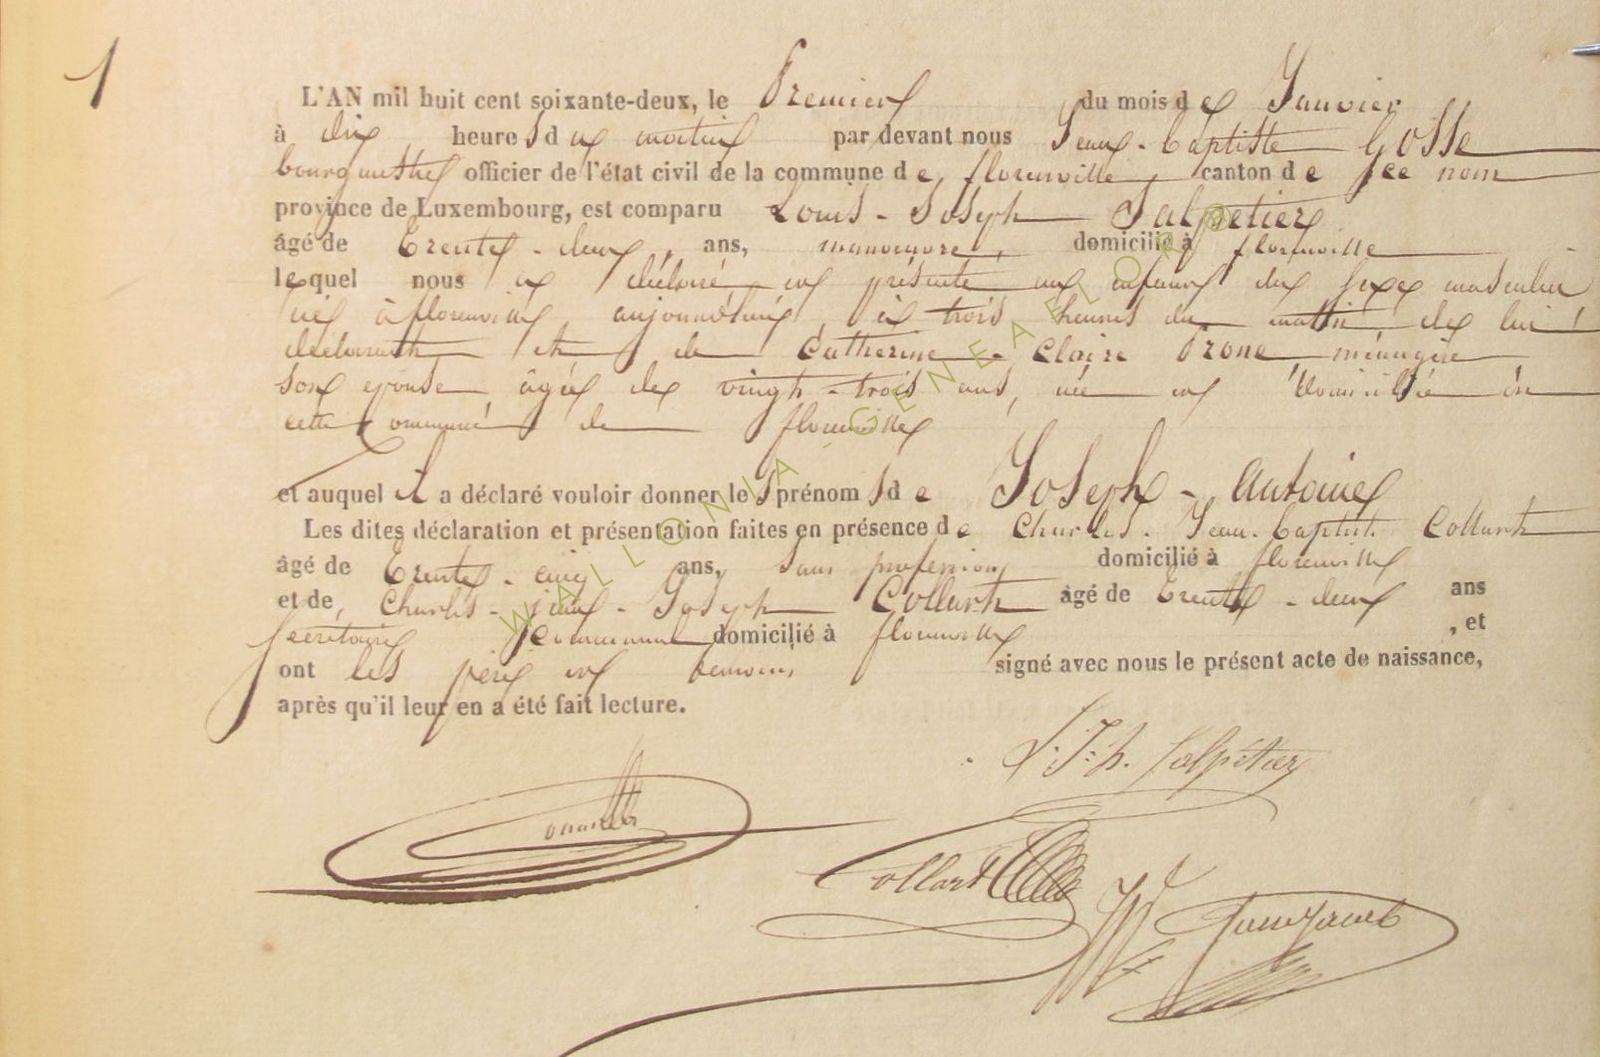 1
L'AN mil huit cent soixante-deux, le Premier du mois de Janvier
à dix heures du matin par devant nous Jean-Baptiste Gosse
bourgmestre officier de l'état civil de la commune de florenville, canton de ce nom
province de Luxembourg, est comparu Louis-Joseph Salpetier
âgé de trente-deux, ans, manoeuvre, domicilié à florenville
lequel nous a déclaré et présenté un enfant du sexe masculin
né à florenville, aujourd'hui, à trois heures du matin, de lui
déclarant et de Catherine-Claire Prone ménagère
son épouse âgée de vingt-trois ans, née et domiciliée en
cette commune de florenville
et auquel il a déclaré vouloir donner les prénoms de Joseph-Antoine
Les dites déclaration et présentation faites en présence de Charles-Jean-Baptiste Collart
âgé de trente-cinq ans, sans profession domicilié à florenville
et de, Charles-jean-Joseph Collart âgé de trente-deux ans
secrétaire communal domicilié à florenville , et
ont les père et témoins signé avec nous le présent acte de naissance,
après qu'il leur en a été fait lecture.
L. J:h. Salpétier
Collart
WALLONIA-GENEALOR©